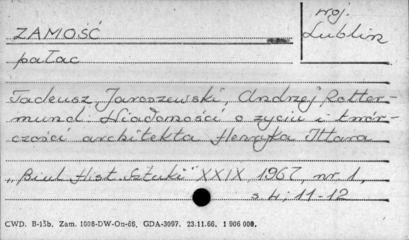 ZAMOŚĆ
woj.
Lublin
pałac
Tadeusz Jaroszewski, Andrzej Rotter-
mund. Wiadomości o życiu i twór-
czości architekta Henryka Ittara
„Biul. Hist. Sztuki" XXIX, 1967, nr 1,
s. 4; 11-12
CWD. B-13b. Zam. 1008-DW-On-66, GDA-3997. 23.11.66. 1 906 000.